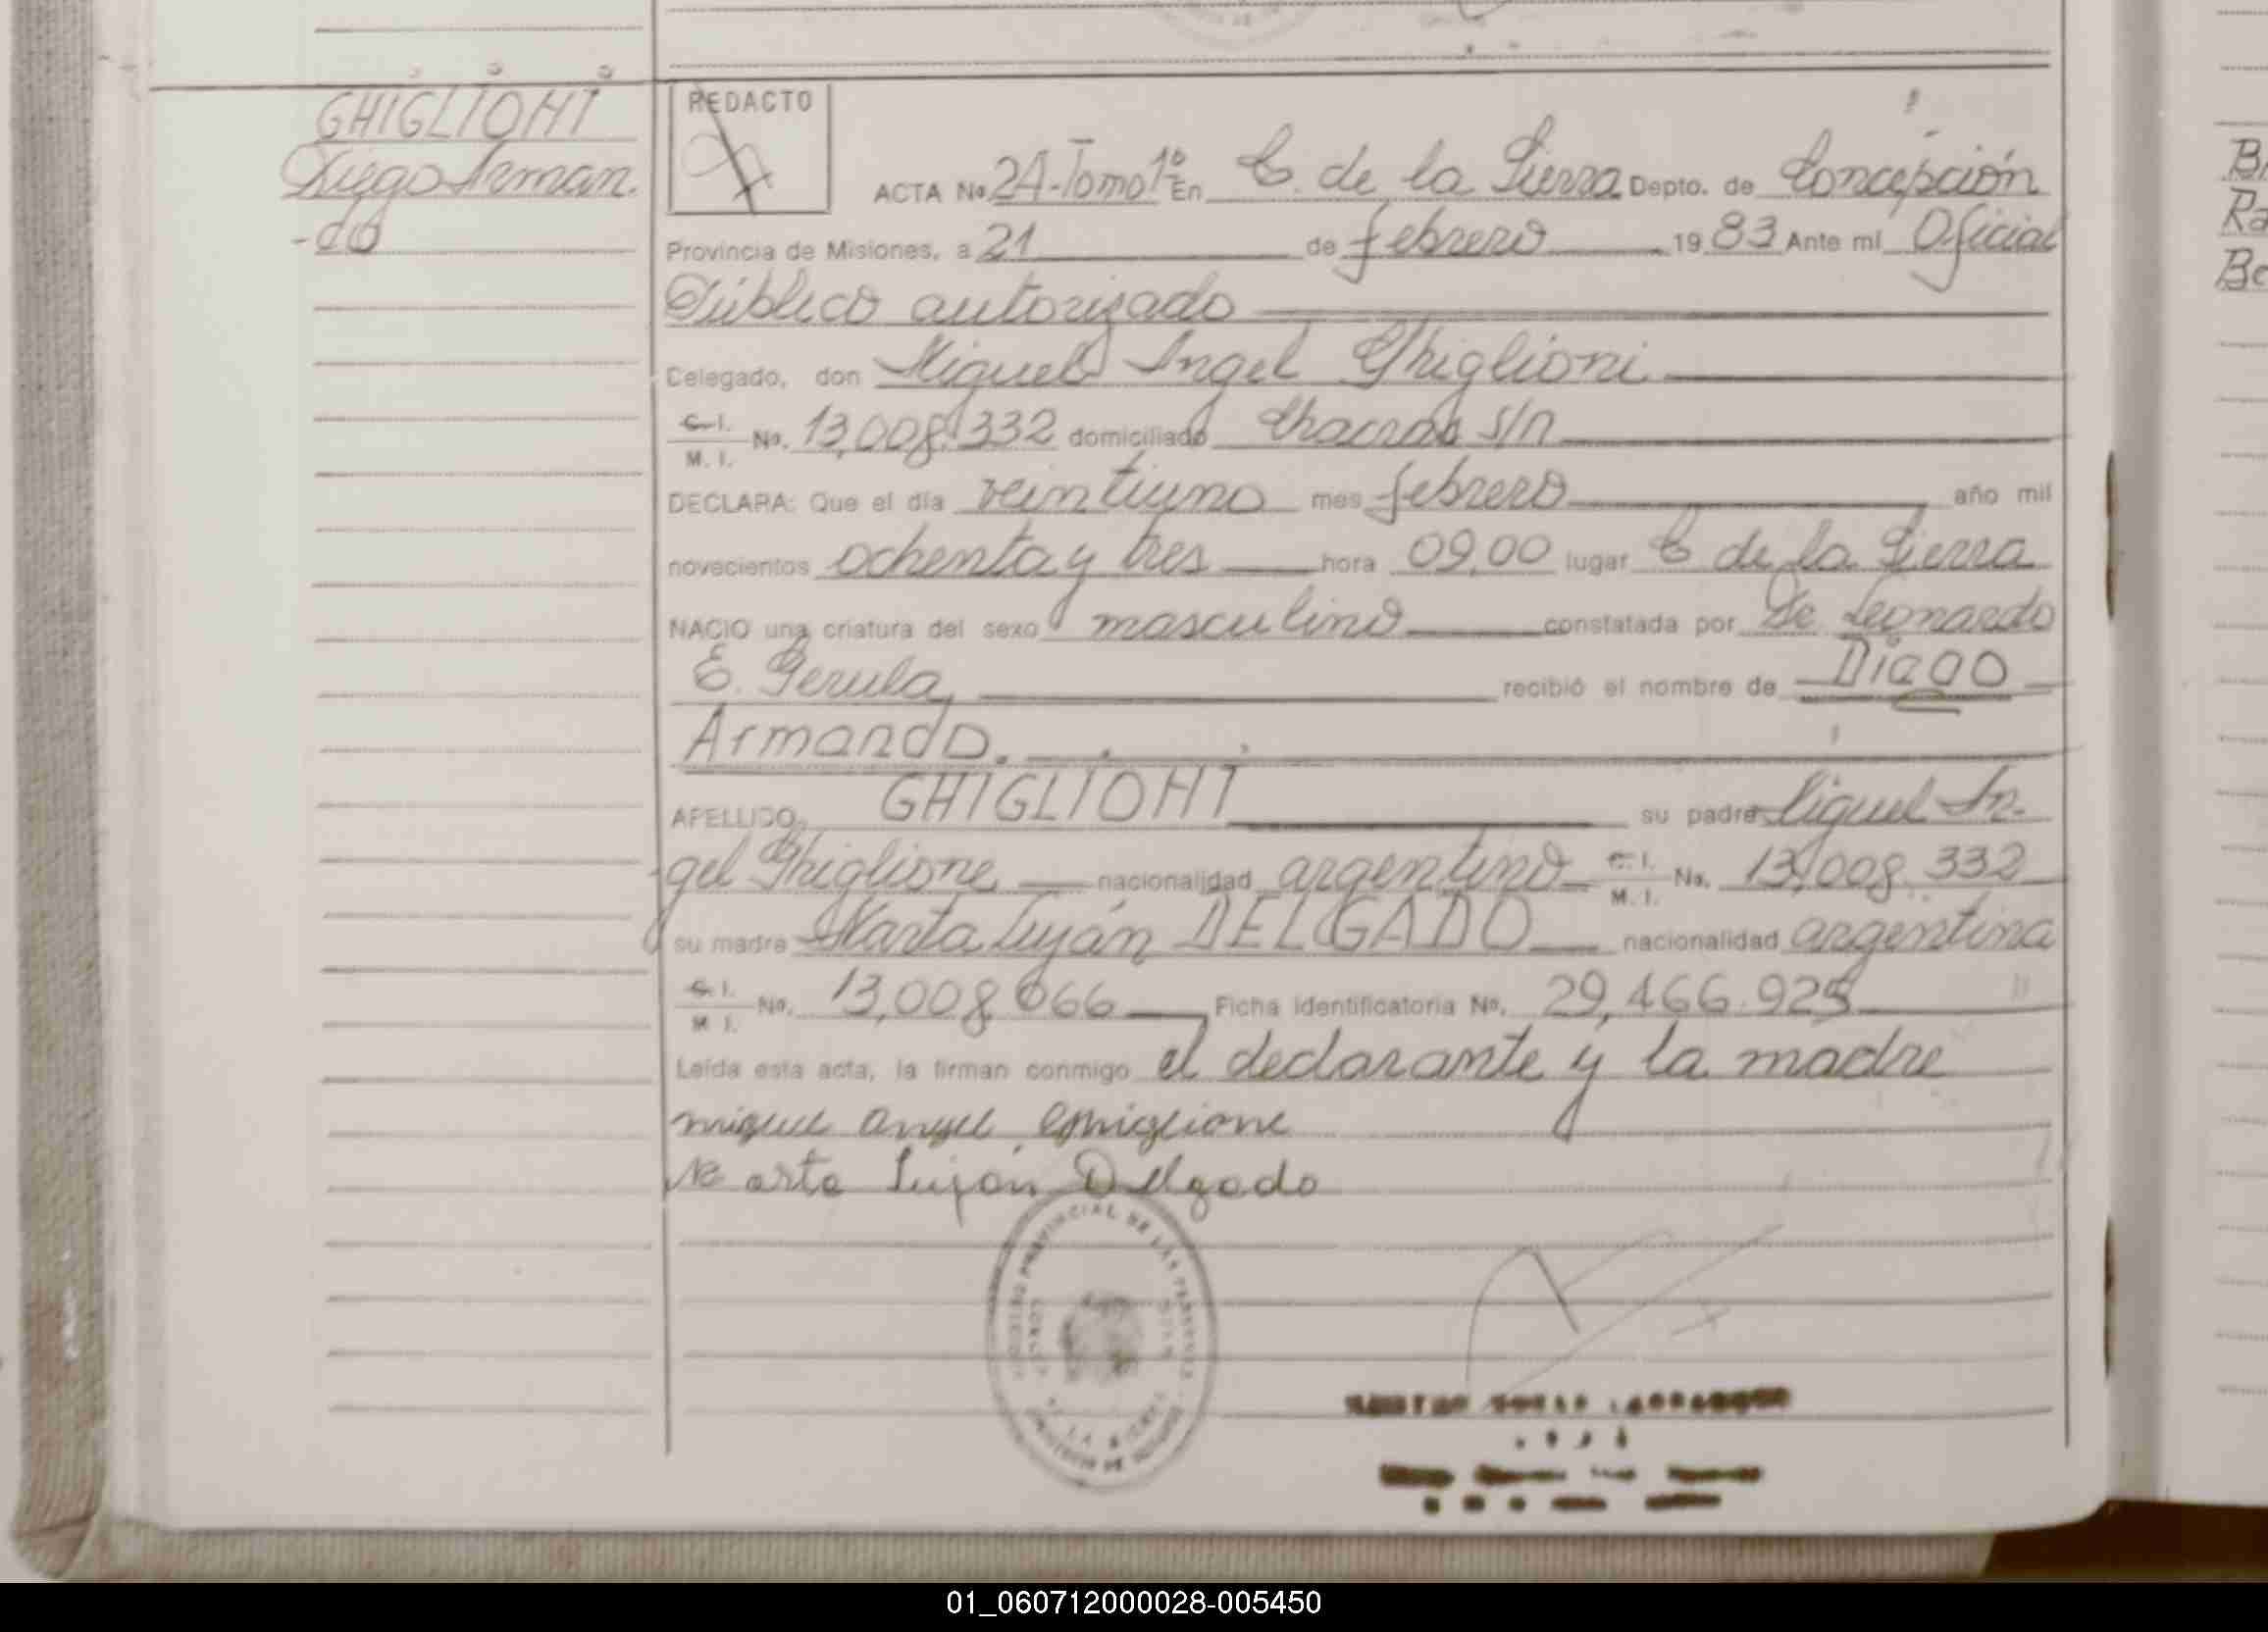 GHIGLIONI
Diego Arman.
-do
REDACTO
ACTA No. 24-Tomo 1º En C. de la Sierra Depto. de Concepción
Provincia de Misiones, a 21 de febrero 1983 Ante mí Oficial
Público autorizado
Delegado, don Miguel Angel Ghiglioni
C.I. M.I. No. 13,008.332 domiciliado Chacras s/n
DECLARA: Que el día veintiuno mes febrero año mil
novecientos ochenta y tres hora 09,00 lugar C de la Sierra
NACIO una criatura del sexo masculino constatada por Dr Leonardo
E. Gerula, recibió el nombre de Diego
Armando.
APELLIDO, GHIGLIONI su padre Miguel An-
gel Ghiglione nacionalidad argentino C.I. M.I. No. 13,008.332
su madre Marta Luján DELGADO nacionalidad argentina
C.I. M.I. No. 13,008,066 Ficha identificatoria No. 29,466.925
Leída esta acta, la firman conmigo el declarante y la madre
miguel angel Ghiglione
Marta Lujan Delgado
REGISTRO PROVINCIAL DE LAS PERSONAS
LA SIERRA
01_060712000028-005450